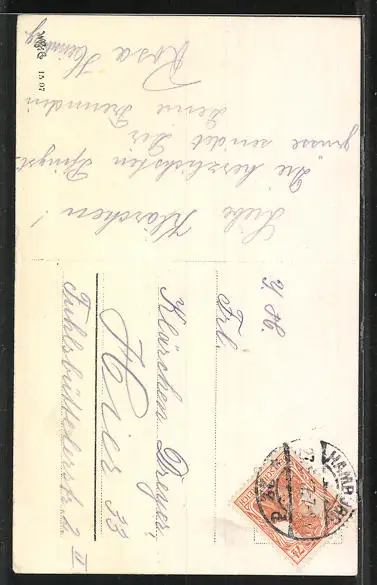 Liebe Klärchen!
"Die herzlichsten Pfingst
grüsse sendet Dir
Deine Freundin
Rosa
15 07
Frl.
Klärchen Dreyer,
Hier 33
Fuhlsbüttelerstr. 2 II
HAMBURG